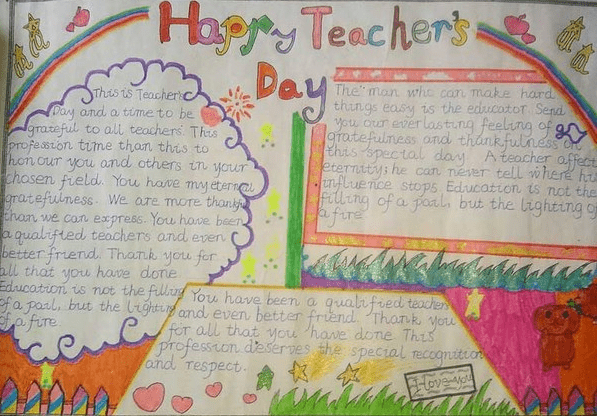 Happy Teacher's
Day
This is Teacher's
Day and a time to be
grateful to all teachers. This
profession time than this to
honour you and others in your
chosen field. You have my eternal
gratefulness. We are more thankful
than we can express. You have been
a qualified teachers and even
better friend. Thank you for
all that you have done
Education is not the filling
of a pail, but the lighting
of a fire
The man who can make hard
things easy is the educator. Send
you our everlasting feeling of
gratefulness and thankfulness on
this special day A teacher affect
eternity; he can never tell where his
influence stops Education is not the
filling of a pail, but the lighting of
a fire.
You have been a qualified teacher
and even better friend. Thank you
for all that you have done This
profession deserves the special recognition
and respect.
I love you